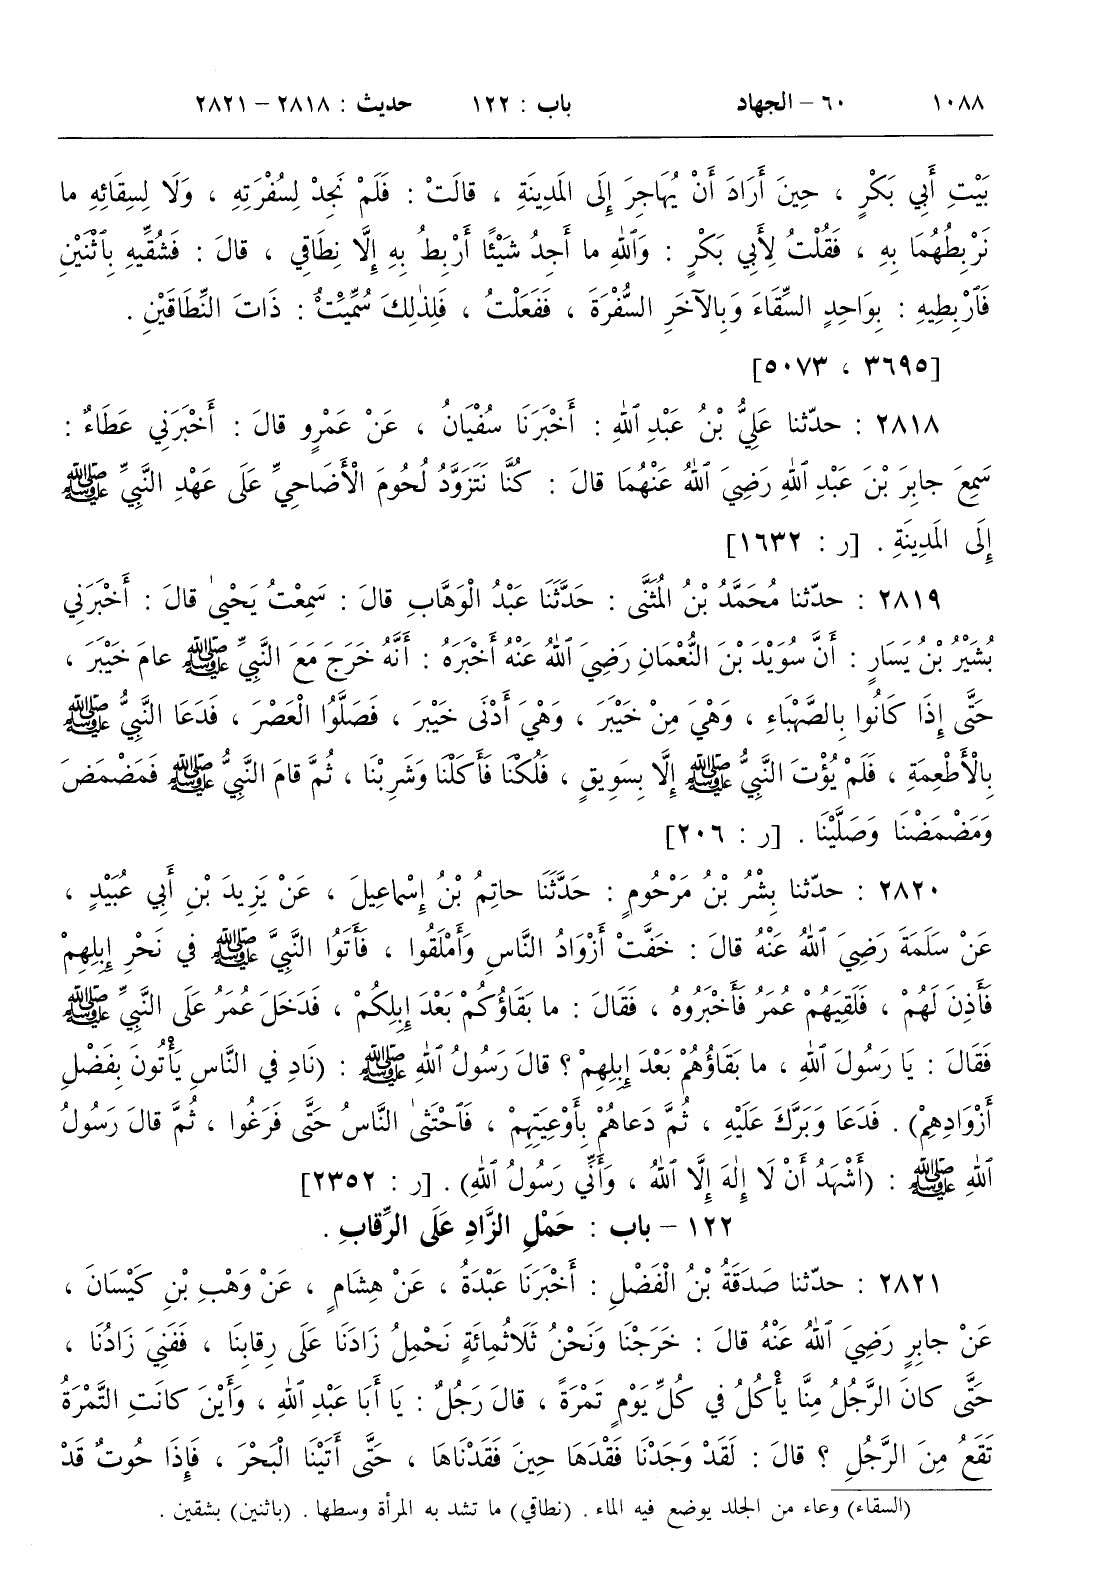 ١٠٨٨ ٦٠ – الجهاد باب : ١٢٢ حديث : ٢٨١٨ – ٢٨٢١
بَيْتِ أَبِي بَكْرٍ ، حِينَ أَرَادَ أَنْ يُهَاجِرَ إِلَى المَدِينَةِ ، قالَتْ : فَلَمْ نَجِدْ لِسُفْرَتِهِ ، وَلَا لِسِقَائِهِ ما
نَرْبِطُهُمَا بِهِ ، فَقُلْتُ لِأَبِي بَكْرٍ : وَٱللهِ ما أَجِدُ شَيْئًا أَرْبِطُ بِهِ إِلَّا نِطَاقِي ، قالَ : فَشُقِّيهِ بِٱثْنَيْنِ
فَٱرْبِطِيهِ : بِوَاحِدٍ السِّقَاءَ وَبِالآخَرِ السُّفْرَةَ ، فَفَعَلْتُ ، فَلِذٰلِكَ سُمِّيَتْ : ذَاتَ النِّطَاقَيْنِ .
[٣٦٩٥ ، ٥٠٧٣]
٢٨١٨ : حدّثنا عَلِيُّ بْنُ عَبْدِ ٱللهِ : أَخْبَرَنَا سُفْيَانُ ، عَنْ عَمْرٍو قالَ : أَخْبَرَنِي عَطَاءٌ :
سَمِعَ جابِرَ بْنَ عَبْدِ ٱللهِ رَضِيَ ٱللهُ عَنْهُمَا قالَ : كُنَّا نَتَزَوَّدُ لُحُومَ الْأَضَاحِيِّ عَلَى عَهْدِ النَّبِيِّ ﷺ
إِلَى المَدِينَةِ . [ر : ١٦٣٢]
٢٨١٩ : حدّثنا مُحَمَّدُ بْنُ المُثَنَّى : حَدَّثَنَا عَبْدُ الْوَهَّابِ قالَ : سَمِعْتُ يَحْيىٰ قالَ : أَخْبَرَنِي
بُشَيْرُ بْنُ يَسَارٍ : أَنَّ سُوَيْدَ بْنَ النُّعْمَانِ رَضِيَ ٱللهُ عَنْهُ أَخْبَرَهُ : أَنَّهُ خَرَجَ مَعَ النَّبِيِّ ﷺ عامَ خَيْبَرَ ،
حَتَّى إِذَا كَانُوا بِالصَّهْبَاءِ ، وَهْيَ مِنْ خَيْبَرَ ، وَهْيَ أَدْنَى خَيْبَرَ ، فَصَلَّوُا الْعَصْرَ ، فَدَعَا النَّبِيُّ ﷺ
بِالْأَطْعِمَةِ ، فَلَمْ يُؤْتَ النَّبِيُّ ﷺ إِلَّا بِسَوِيقٍ ، فَلُكْنَا فَأَكَلْنَا وَشَرِبْنَا ، ثُمَّ قامَ النَّبِيُّ ﷺ فَمَضْمَضَ
وَمَضْمَضْنَا وَصَلَّيْنَا . [ر : ٢٠٦]
٢٨٢٠ : حدّثنا بِشْرُ بْنُ مَرْحُومٍ : حَدَّثَنَا حاتِمُ بْنُ إِسْماعِيلَ ، عَنْ يَزِيدَ بْنِ أَبِي عُبَيْدٍ ،
عَنْ سَلَمَةَ رَضِيَ ٱللهُ عَنْهُ قالَ : خَفَّتْ أَزْوَادُ النَّاسِ وَأَمْلَقُوا ، فَأَتَوُا النَّبِيَّ ﷺ في نَحْرِ إِبِلِهِمْ
فَأَذِنَ لَهُمْ ، فَلَقِيَهُمْ عُمَرُ فَأَخْبَرُوهُ ، فَقَالَ : ما بَقَاؤُكُمْ بَعْدَ إِبِلِكُمْ ، فَدَخَلَ عُمَرُ عَلَى النَّبِيِّ ﷺ
فَقَالَ : يَا رَسُولَ ٱللهِ ، ما بَقَاؤُهُمْ بَعْدَ إِبِلِهِمْ ؟ قالَ رَسُولُ ٱللهِ ﷺ : (نَادِ في النَّاسِ يَأْتُونَ بِفَضْلِ
أَزْوَادِهِمْ) . فَدَعَا وَبَرَّكَ عَلَيْهِ ، ثُمَّ دَعاهُمْ بِأَوْعِيَتِهِمْ ، فَٱحْتَثىٰ النَّاسُ حَتَّى فَرَغُوا ، ثُمَّ قالَ رَسُولُ
ٱللهِ ﷺ : (أَشْهَدُ أَنْ لَا إِلٰهَ إِلَّا ٱللهُ ، وَأَنِّي رَسُولُ ٱللهِ) . [ر : ٢٣٥٢]
١٢٢ – باب : حَمْلِ الزَّادِ عَلَى الرِّقابِ .
٢٨٢١ : حدّثنا صَدَقَةُ بْنُ الْفَضْلِ : أَخْبَرَنَا عَبْدَةُ ، عَنْ هِشَامٍ ، عَنْ وَهْبِ بْنِ كَيْسَانَ ،
عَنْ جابِرٍ رَضِيَ ٱللهُ عَنْهُ قالَ : خَرَجْنَا وَنَحْنُ ثَلَاثُمِائَةٍ نَحْمِلُ زَادَنَا عَلَى رِقابِنَا ، فَفَنِيَ زَادُنَا ،
حَتَّى كانَ الرَّجُلُ مِنَّا يأْكُلُ في كُلِّ يَوْمٍ تَمْرَةً ، قالَ رَجُلٌ : يَا أَبَا عَبْدِ ٱللهِ ، وَأَيْنَ كانَتِ التَّمْرَةُ
تَقَعُ مِنَ الرَّجُلِ ؟ قالَ : لَقَدْ وَجَدْنَا فَقْدَهَا حِينَ فَقَدْنَاهَا ، حَتَّى أَتَيْنَا الْبَحْرَ ، فَإِذَا حُوتٌ قَدْ
(السقاء) وعاء من الجلد يوضع فيه الماء . (نطاقي) ما تشد به المرأة وسطها . (باثنين) بشقين .